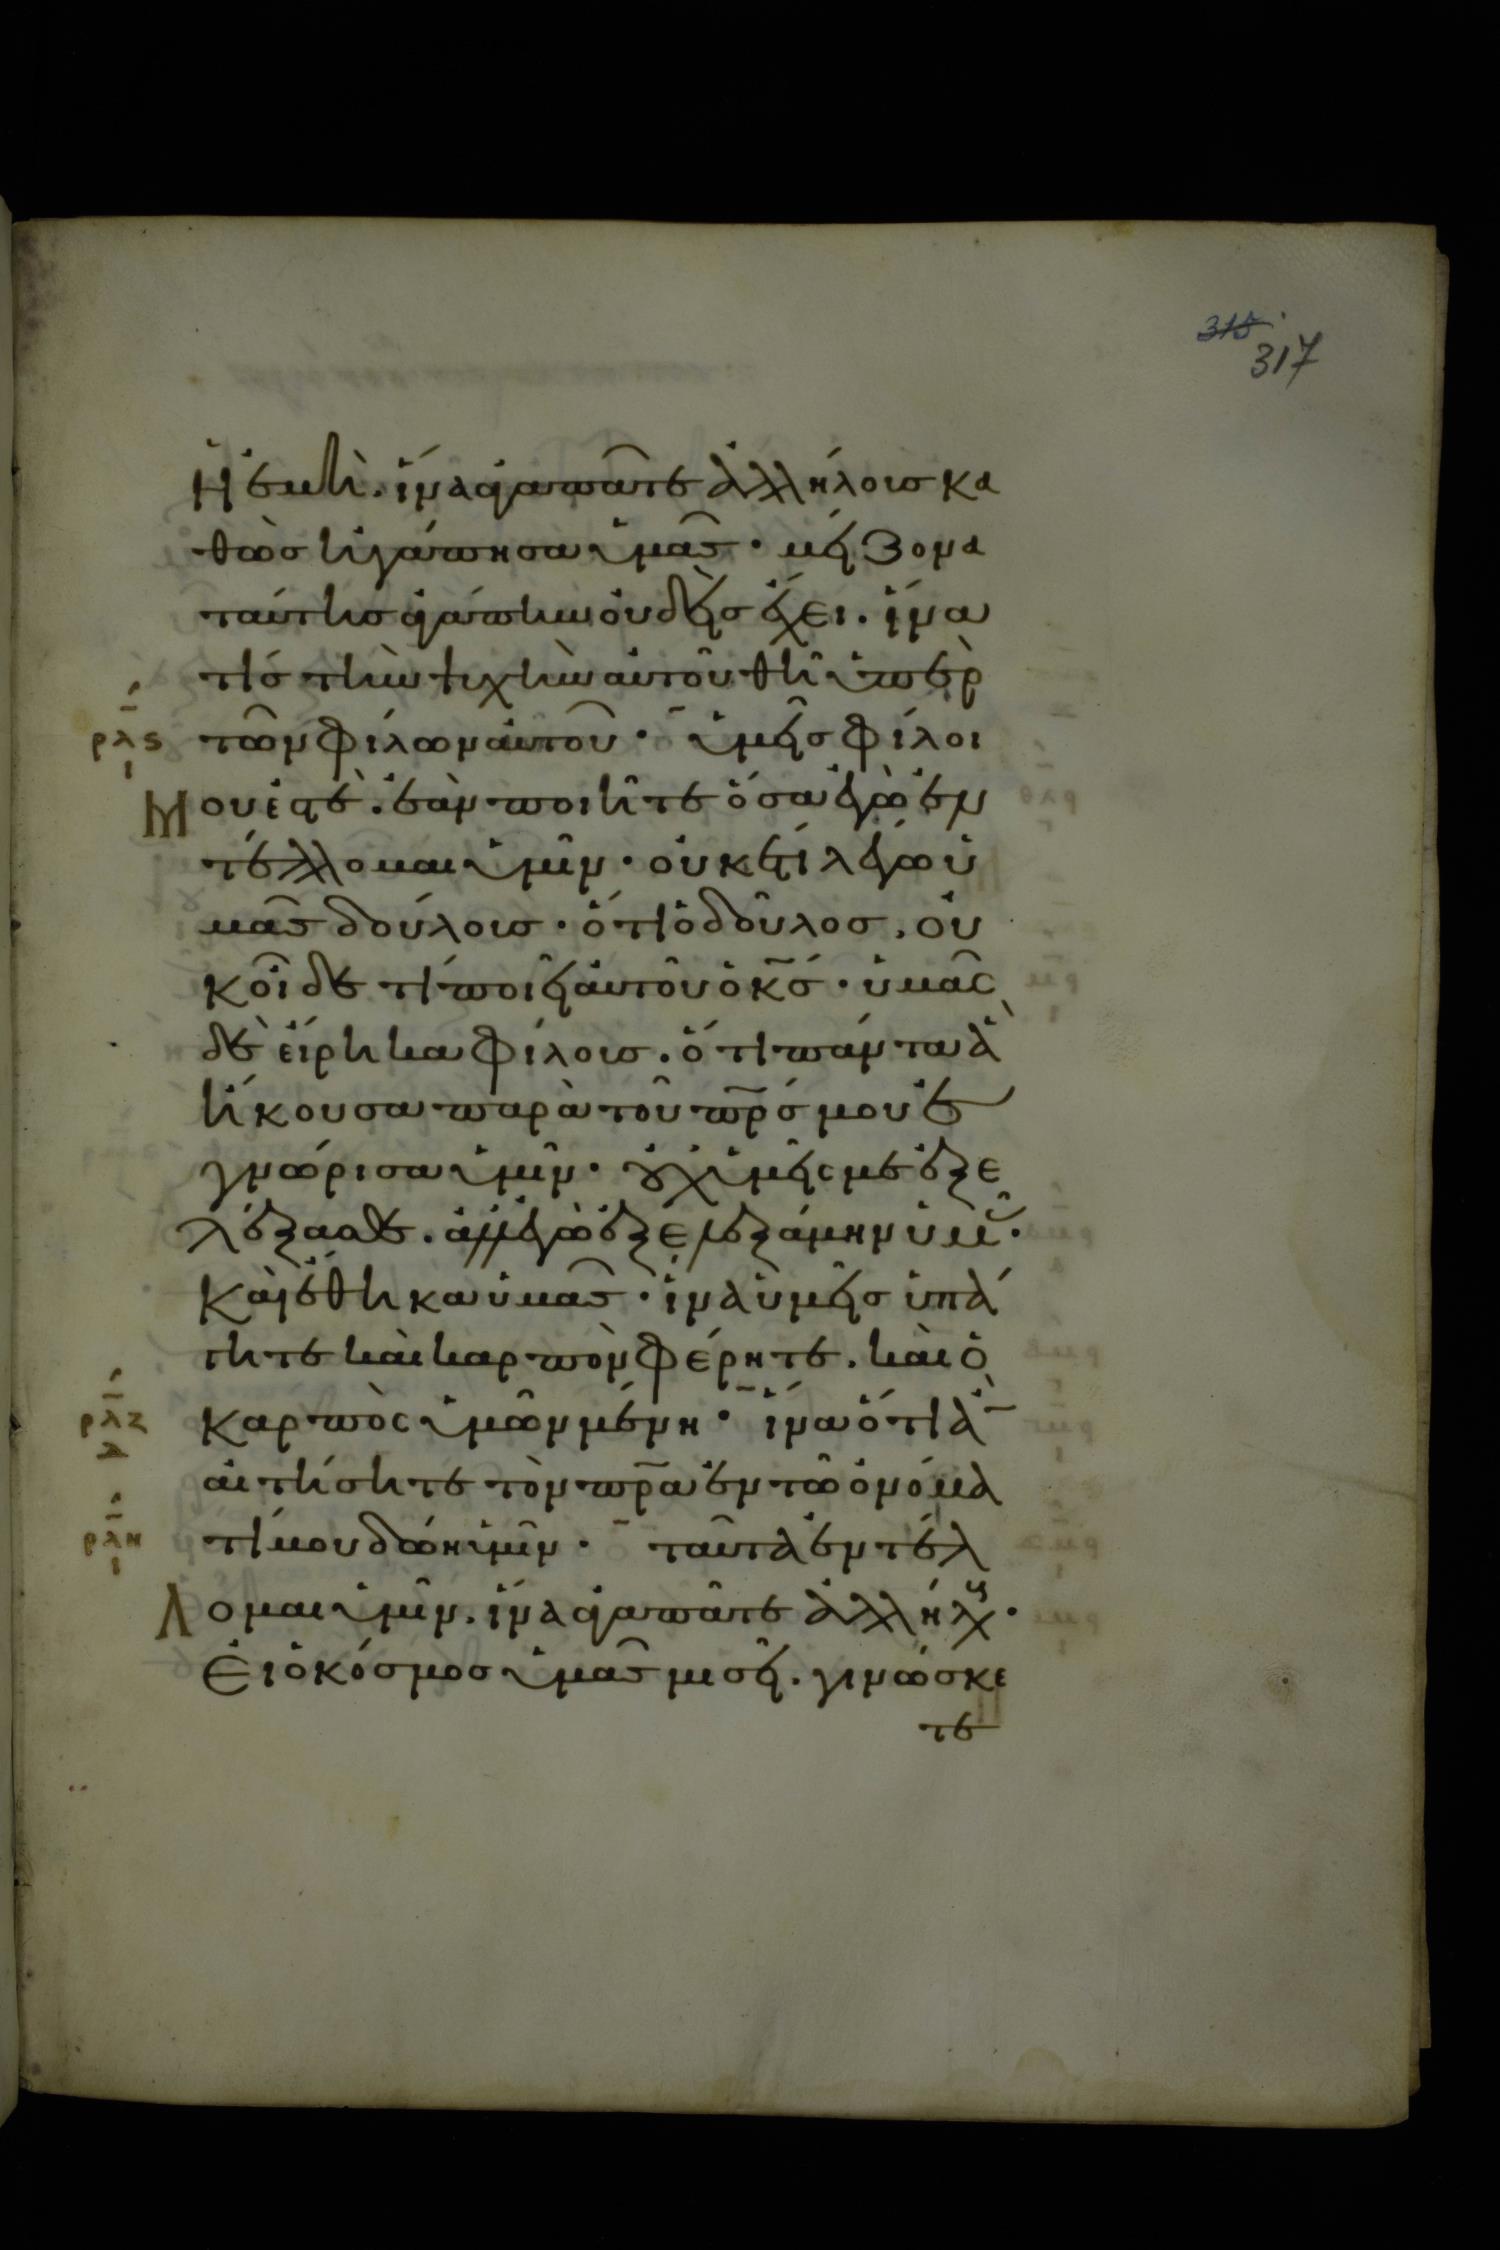 315
317
ἡ ἐμὴ. ἵνα ἀγαπᾶτε ἀλλήλοις κα
θὼς ἠγάπησα ὑμᾶς· μείζονα
ταύτης ἀγάπην οὐδεὶς ἔχει. ἵνα
τίς τὴν ψυχὴν αὐτοῦ θῆ ὑπὲρ
ρλς
ι
τῶν φίλων αὐτοῦ· ὑμεῖς φίλοι
Μου ἐστὲ. ἐὰν ποιῆτε ὅσα ἐγὼ ἐν
τέλλομαι ὑμῖν· οὐκ ἔτι λέγω ὑ
μᾶς δούλοις· ὅτι ὁ δοῦλος, οὐ
κ οἶδε τί ποιεῖ αὐτοῦ ὁ κς· ὑμᾶς
δὲ εἴρηκα φίλοις. ὅτι πάντα ἃ
ἤκουσα παρὰ τοῦ πρς μου ἐ
γνώρισα ὑμῖν· οὐχ ὑμεῖς με ἐξε
λέξασθε. ἀλλ' ἐγὼ ἐξελεξάμην ὑμᾶς·
Καὶ ἔθηκα ὑμᾶς· ἵνα ὑμεῖς ὑπά
γητε καὶ καρπὸν φέρητε. καὶ ὁ
ρλζ
δ
καρπὸς ὑμῶν μένη· ἵνα ὅτι ἂ
αἰτήσητε τὸν πρα ἐν τῶ ὀνόμα
ρλη
ι
τί μου δώη ὑμῖν· ταῦτα ἐντέλ
Λομαι ὑμῖν. ἵνα ἀγαπᾶτε ἀλλήλους·
Εἰ ὁ κόσμος ὑμᾶς μισεῖ. γινώσκε
τε